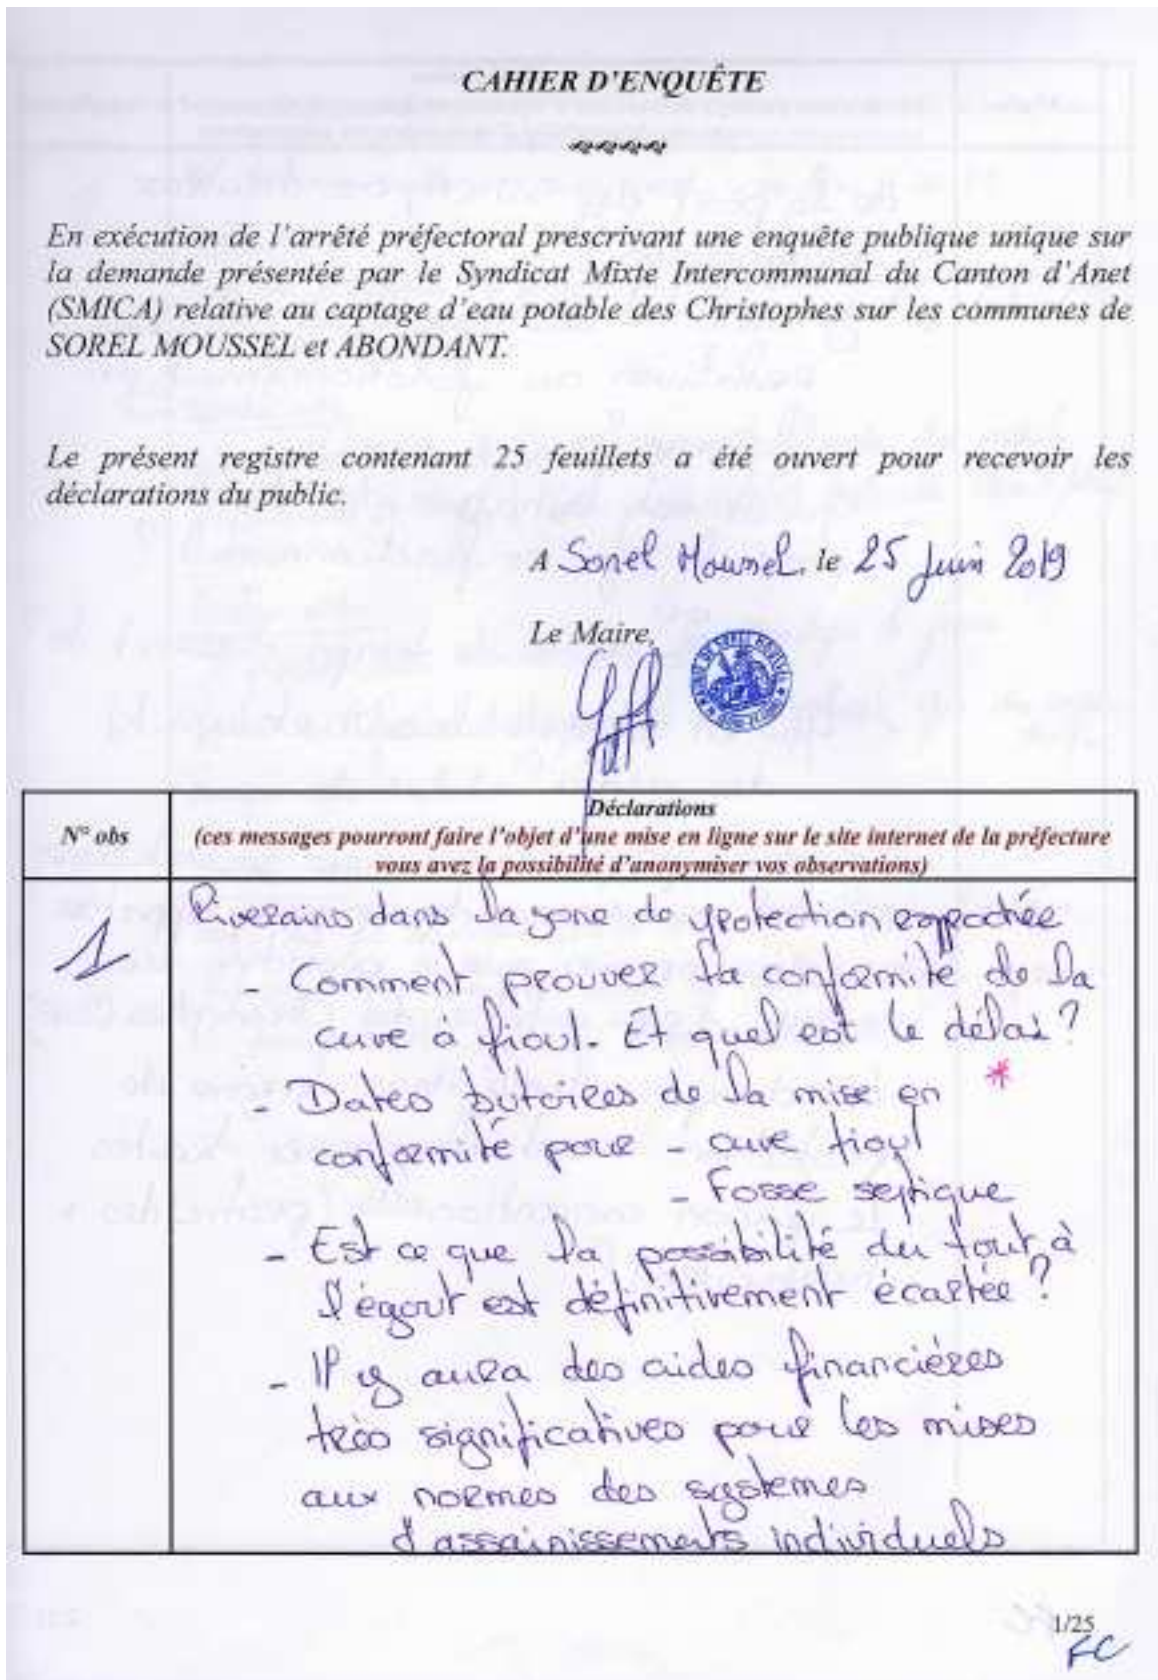 CAHIER D'ENQUÊTE
En exécution de l'arrêté préfectoral prescrivant une enquête publique unique sur
la demande présentée par le Syndicat Mixte Intercommunal du Canton d'Anet
(SMICA) relative au captage d'eau potable des Christophes sur les communes de
SOREL MOUSSEL et ABONDANT.
Le présent registre contenant 25 feuillets a été ouvert pour recevoir les
déclarations du public.
A Sorel Moussel, le 25 Juin 2019
Le Maire,
N° obs
Déclarations
(ces messages pourront faire l'objet d'une mise en ligne sur le site internet de la préfecture
vous avez la possibilité d'anonymiser vos observations)
1
Riverains dans la zone de protection rapprochée
- Comment prouver la conformité de la
cuve à fioul. Et quel est le délai ?
- Dates butoires de la mise en *
conformité pour - cuve fioul
- Fosse septique
- Est ce que la possibilité du tout à
l'égout est définitivement écartée ?
- Il y aura des aides financières
très significatives pour les mises
aux normes des systemes
d'assainissements individuels
1/25
FC